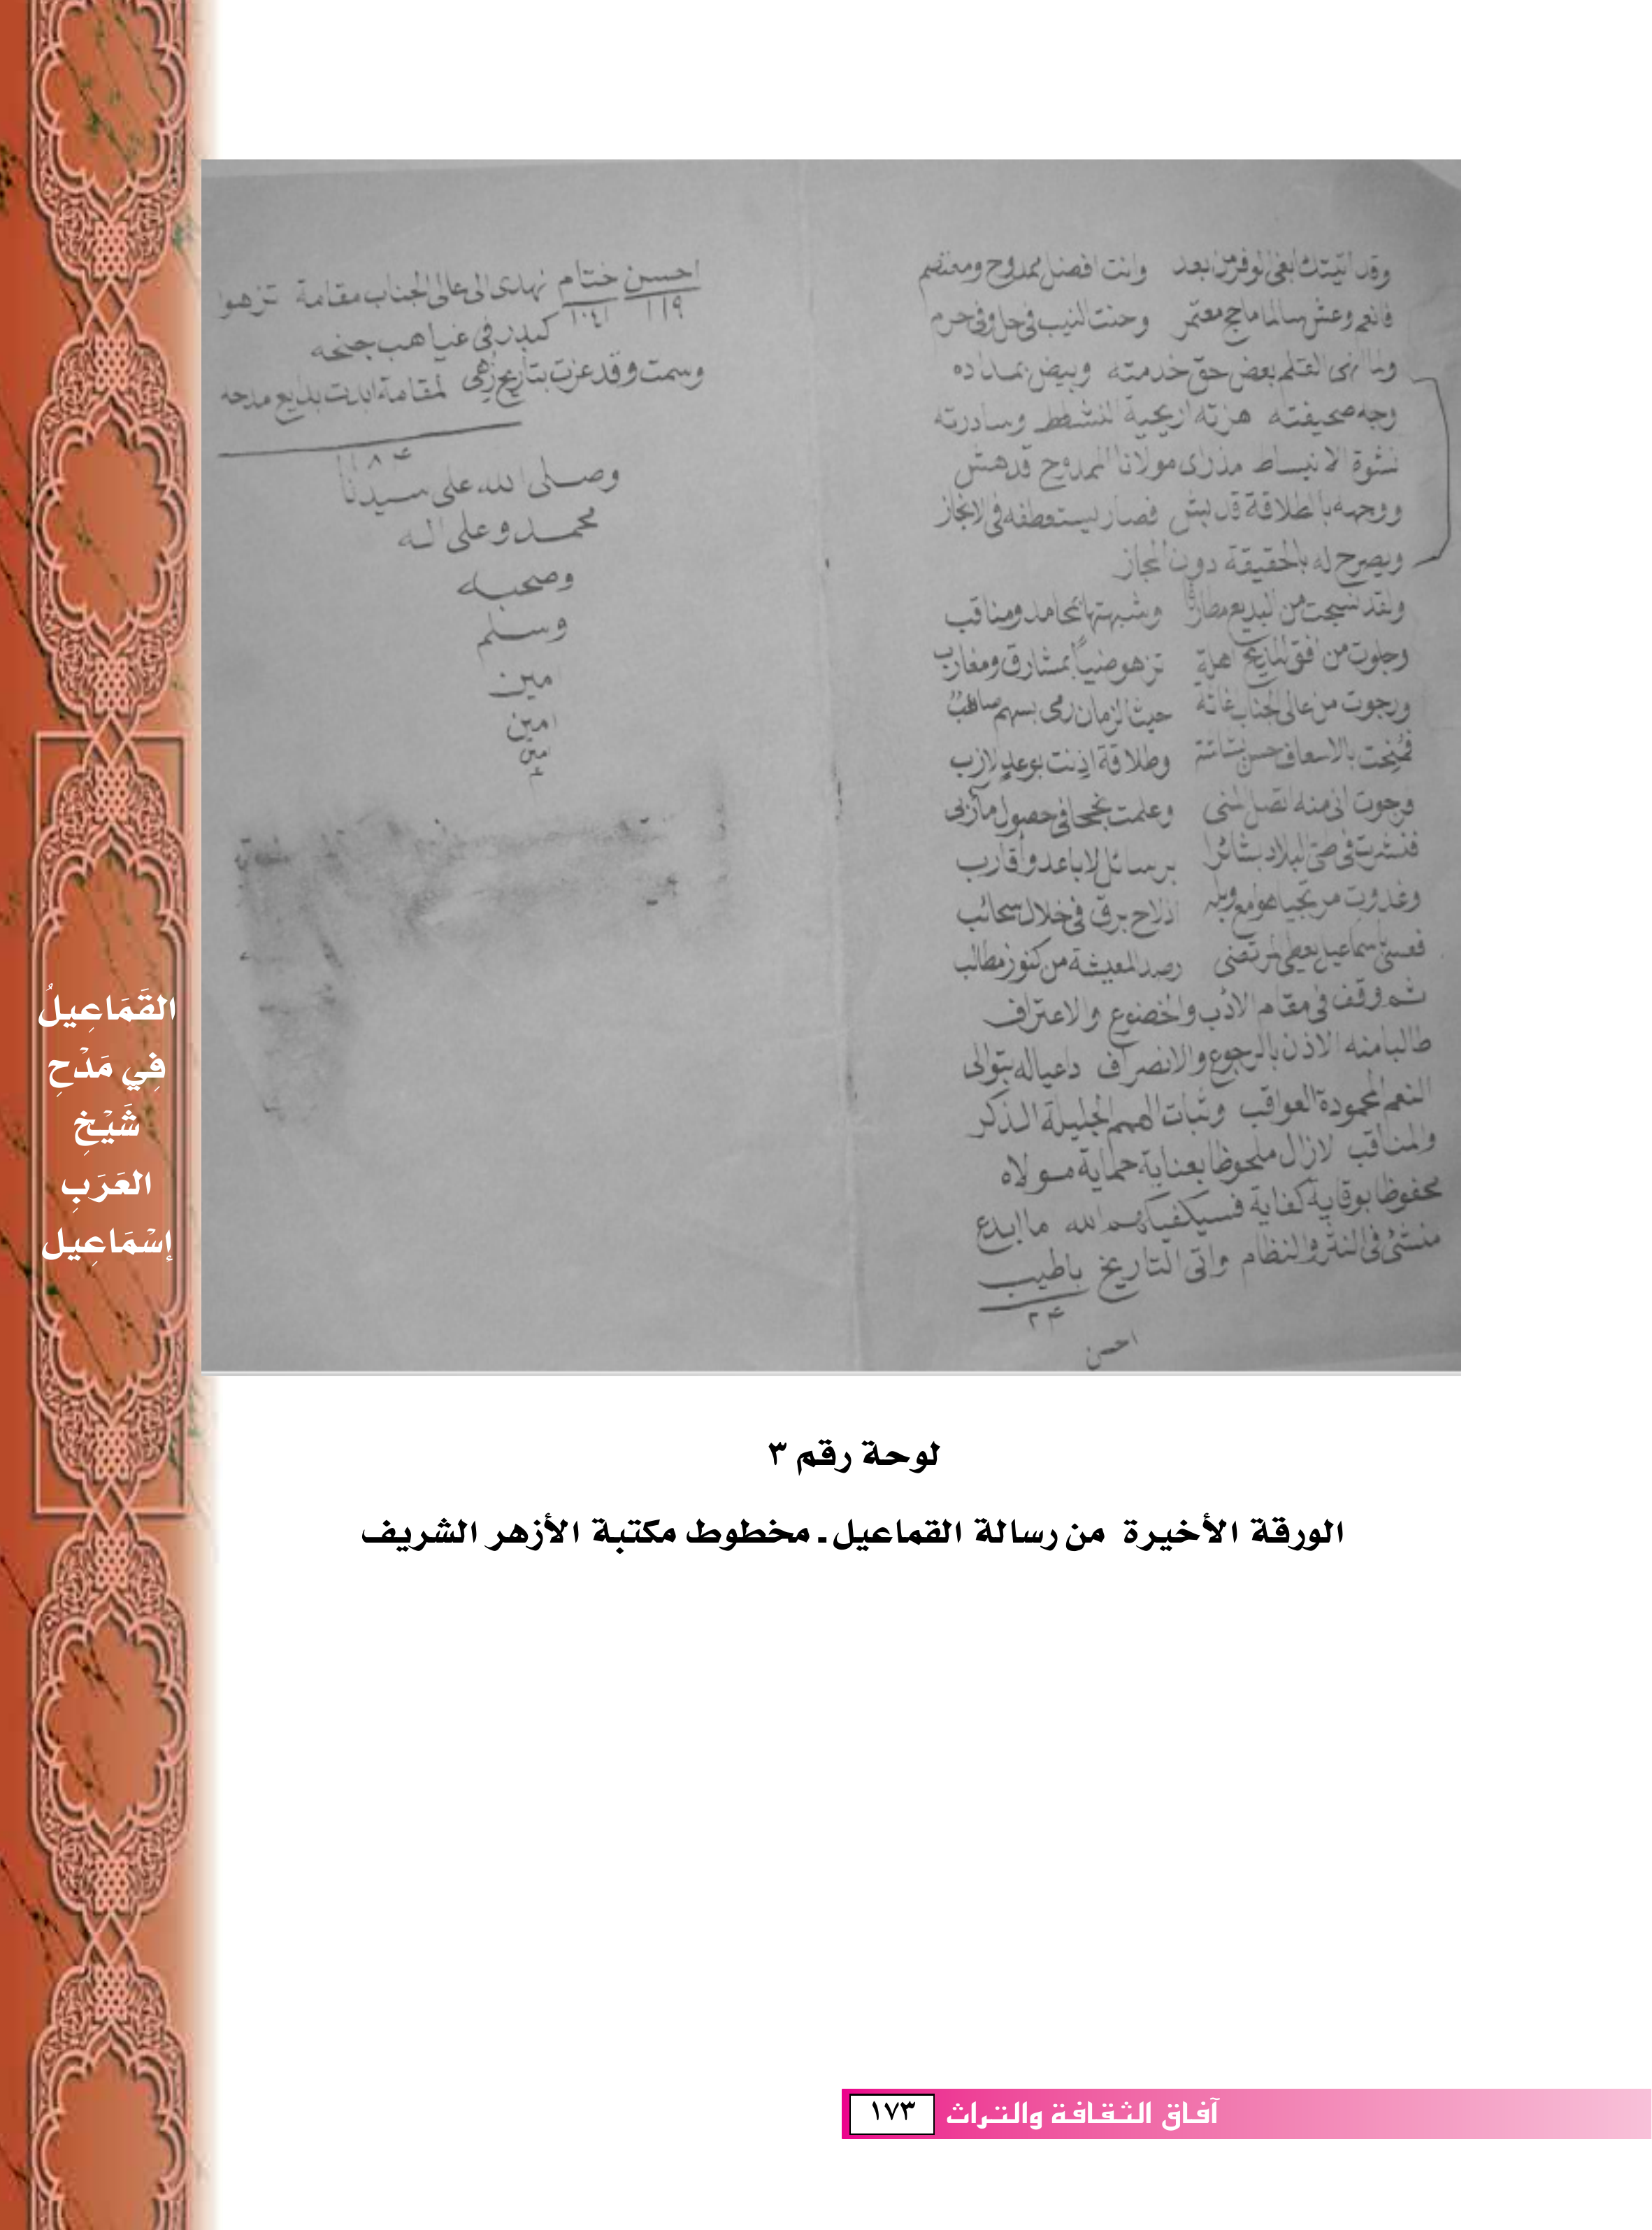 وقد اتيتك ابغى الوفر من ابعد وانت افضل ممدوح ومعتصم
فانعم وعش سالما ماحج معتمر وحنت النيب في حل وفي حرم
ولما انهى القلم بعض حق خدمته وبيض بمداده
وجه صحيفته هزته اريحية النشاط وسادرته
نشوة الانبساط مذراى مولانا الممدوح قد هش
ووجهه بالطلاقة قد بش فصار يستعطفه في الانجاز
ويصرح له بالحقيقة دون المجاز
ولقد نسجت من البديع مطارفا وشبهتها بمحامد ومناقب
وجلوت من افق التاريخ اهلة تزهو ضياً بمشارق ومغارب
ورجوت من عالى الجناب اغاثة حيث الزمان رمى بسهم صائب
فمنحت بالاسعاف حسن بشاشة وطلاقة اذنت بوعد لازب
فرجوت انى منه اتصل المنى وعلمت نجحا في حصول مآربى
فنشرت في البلاد بشائرا برسائل لاباعد وأقارب
وغدوت مرتجيا هوامع وبله اذلاح برق في خلال سحائب
فعسى اسماعيل يعطى المرتضى رصد المعيشة من كنوز مطالب
ثم وقف في مقام الادب والخضوع والاعتراف
طالبا منه الاذن بالرجوع والانصراف داعيا له بتوالى
النعم المحمودة العواقب وثبات الهمم الجليلة الذكر
والمناقب لازال ملحوظا بعناية حماية مولاه
محفوظا بوقاية كفاية فسيكفيكهم الله ما ابدع
منشئ في النثر والنظام واتى التاريخ باطيب
٢٤
احسن
احسن ختام نهدى الى عالى الجناب مقامة تزهوا
١١٩ ١٠٤١
كبدر في غياهب جنحه
وسمت وقد عزت بتاريخ زهى لمقامة ابدت بدايع مدحه
٨٤
وصلى الله على سيدنا
محمد وعلى اله
وصحبه
وسلم
امين
امين
امين
القَمَاعِيلُ
فِي مَدْحِ
شَيْخِ
العَرَبِ
إسْمَاعِيل
لوحة رقم ٣
الورقة الأخيرة من رسالة القماعيل ـ مخطوط مكتبة الأزهر الشريف
آفاق الثقافة والتراث ١٧٣